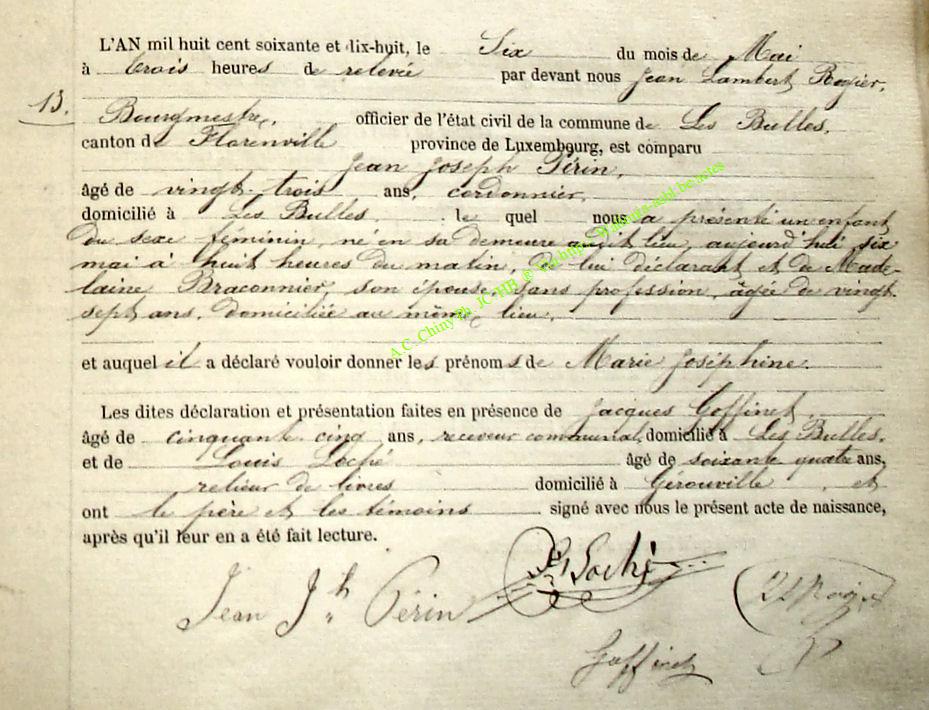 L'AN mil huit cent soixante et dix-huit, le Six du mois de Mai
à trois heures de relevée par devant nous Jean Lambert Rogier,
13.
Bourgmestre, officier de l'état civil de la commune de Les Bulles,
canton de Florenville province de Luxembourg, est comparu
Jean Joseph Périn,
âgé de vingt-trois ans, cordonnier,
domicilié à Les Bulles, le quel nous a présenté un enfant
du sexe féminin, né en sa demeure audit lieu, aujourd'hui six
mai à huit heures du matin, de lui déclarant et de Made-
laine Braconnier, son épouse, sans profession, âgée de vingt
sept ans, domiciliée au même lieu.
et auquel il a déclaré vouloir donner les prénoms de Marie Joséphine.
Les dites déclaration et présentation faites en présence de Jacques Goffinet,
âgé de cinquante cinq ans, receveur communal, domicilié à Les Bulles,
et de Louis Loché âgé de soixante quatre ans,
relieur de livres domicilié à Gérouville, et
ont le père et les témoins signé avec nous le présent acte de naissance,
après qu'il leur en a été fait lecture.
Jean Jh Périn
Loché
Goffinet
A.C. Chiny Ph. JC-HB ©